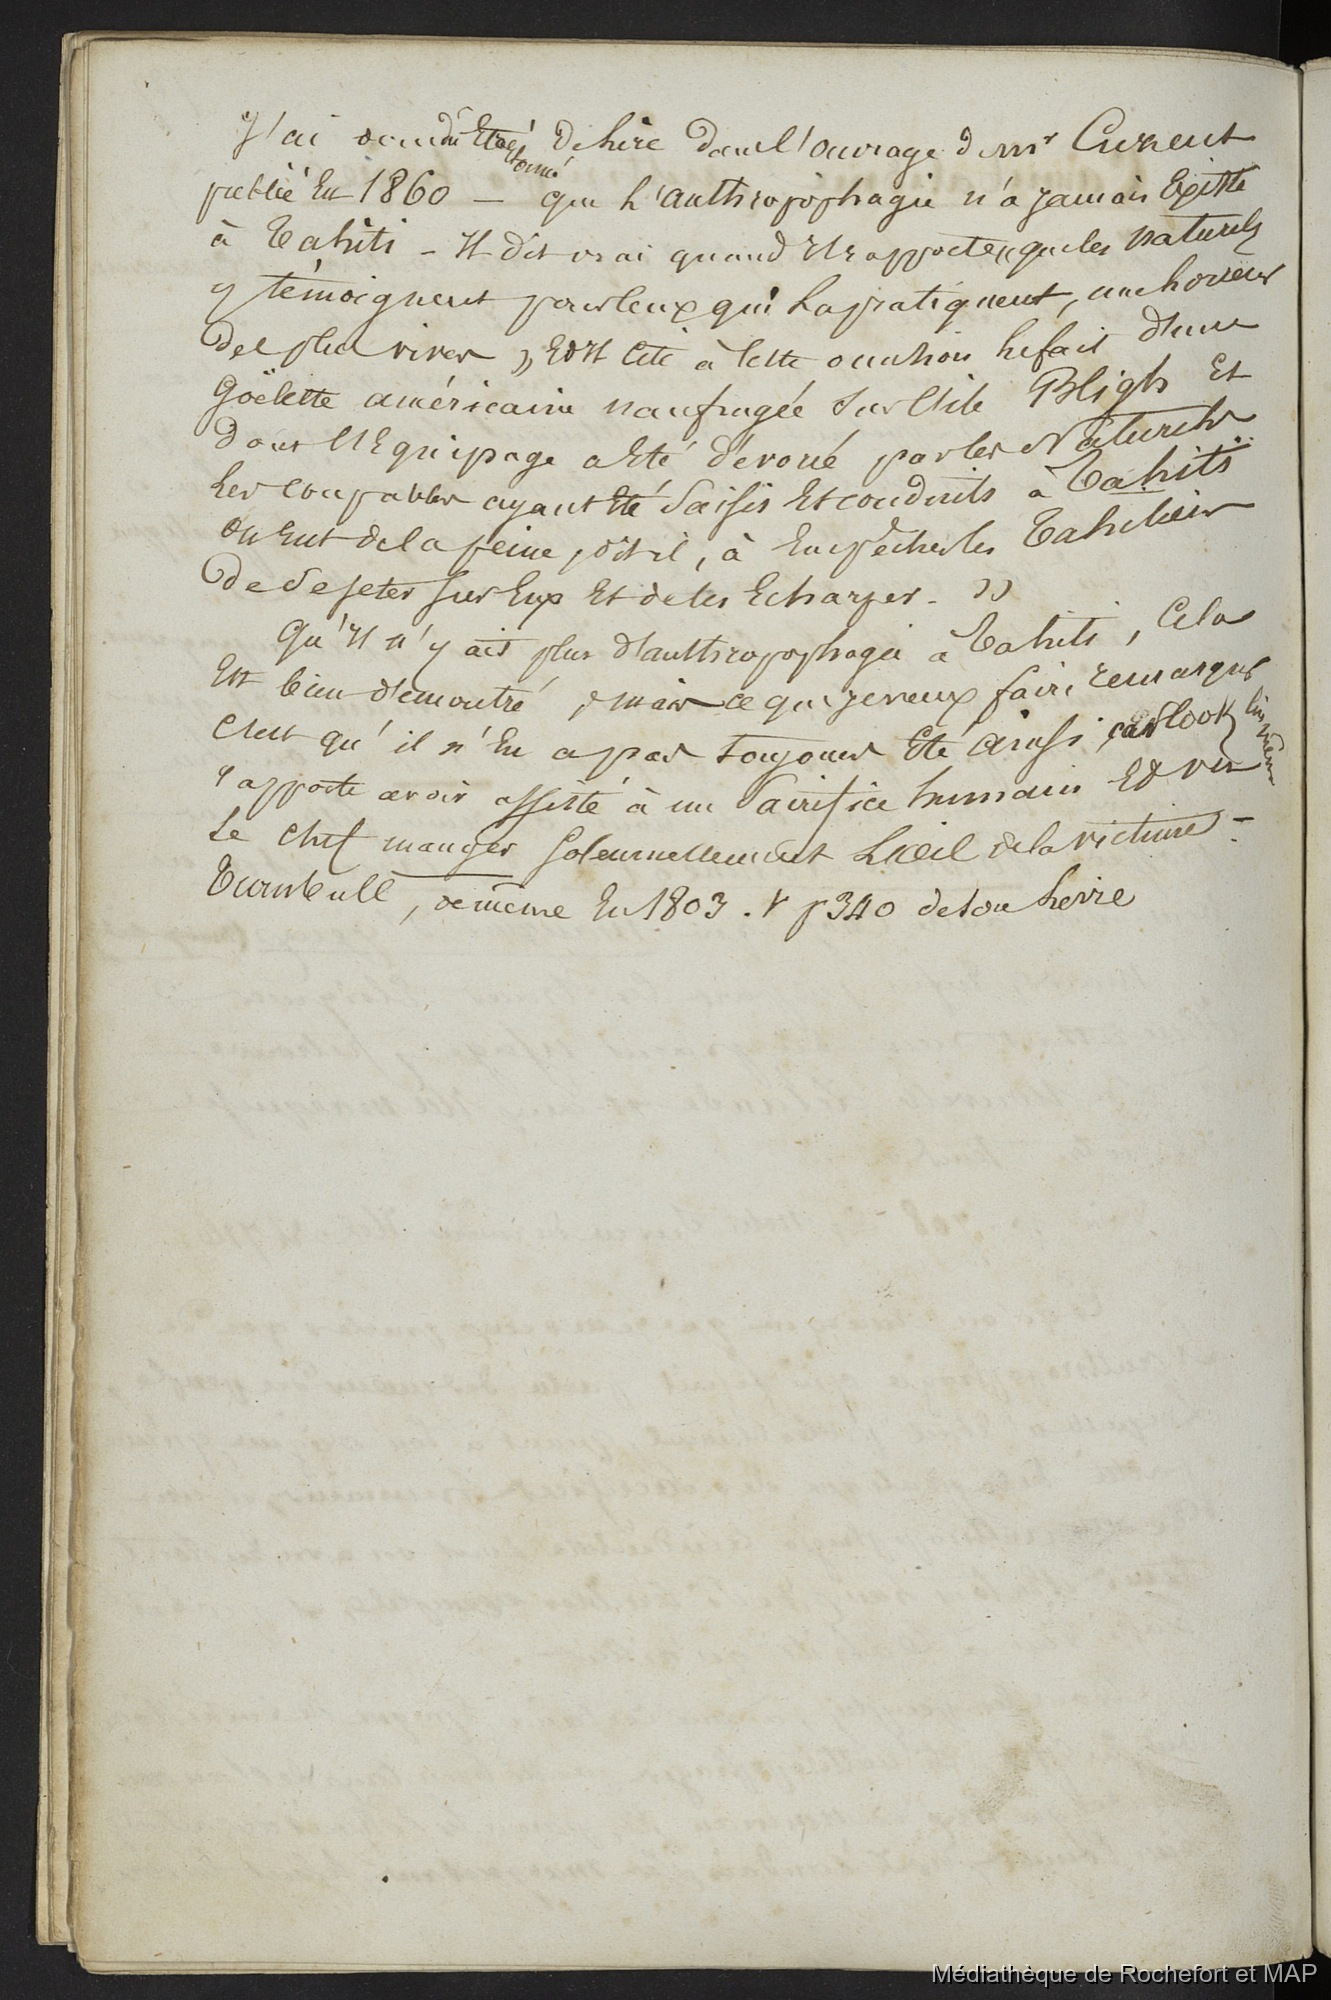 J'ai dû être étonné de lire dans l'ouvrage de Mr Cuzent
publié en 1860 — que l'anthropophagie n'a jamais existé
à Tahiti - Il dit vrai quand il rapporte que les naturels
y témoignent pour ceux qui la pratiquent, une horreur
des plus vives » et il cite à cette occasion le fait d'une
Goëlette américaine naufragée sur l'île Bligh et
dont l'équipage a été dévoré par les Naturels
les coupables ayant été saisis et conduits à Tahiti
on eut de la peine, dit il, à empêcher les Tahitiens
de se jeter sur eux et de les écharper - »
Qu'il n'y ait plus d'anthropophagie à Tahiti, cela
est bien démontré, mais ce que je veux faire remarquer
c'est qu'il n'en a pas toujours été ainsi, car Cook lui même
rapporte avoir assisté à un sacrifice humain et vu
le chef manger solennellement l'œil de la victime -
Turnbull, de même en 1803. V p 340 de son livre
Médiathèque de Rochefort et MAP